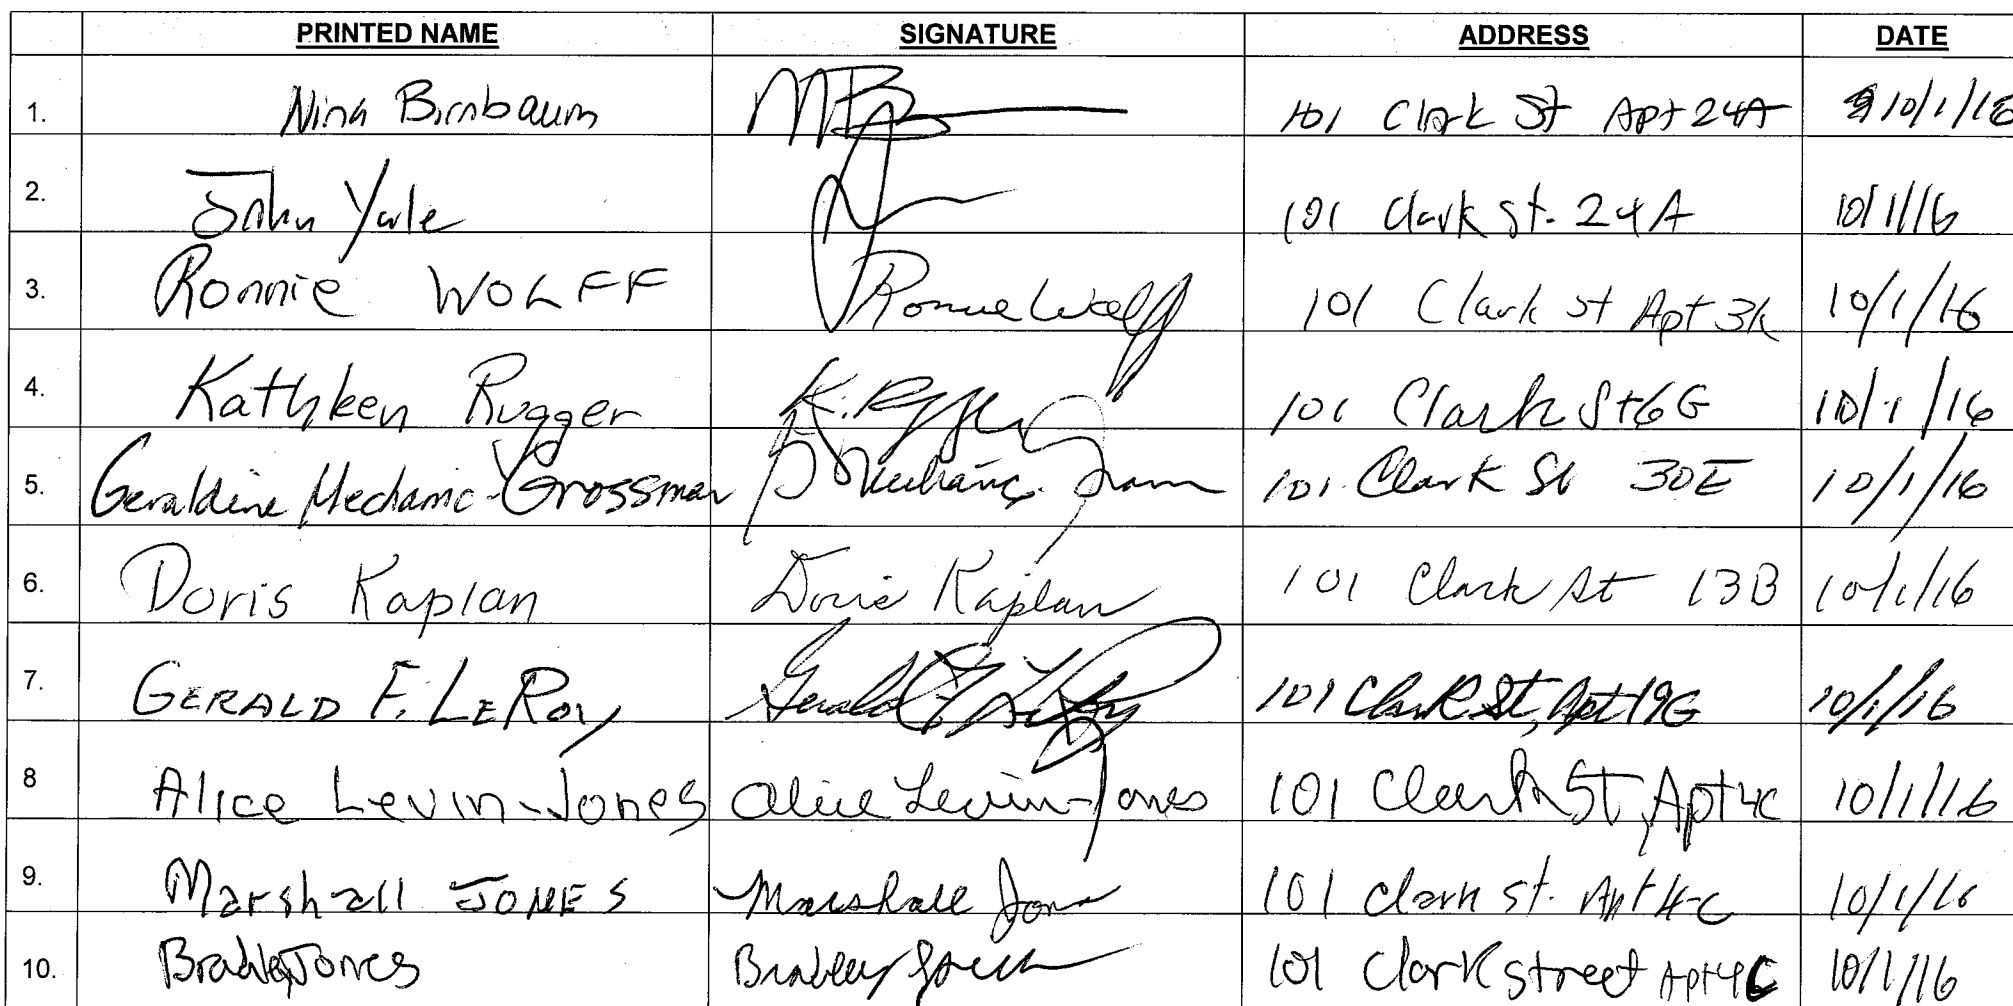 PRINTED NAME SIGNATURE ADDRESS DATE
1. Nina Birnbaum NB 101 Clark St Apt 24A 10/1/16
2. John Yale 101 Clark St. 24A 10/1/16
3. Ronnie WOLFF Ronnie Wolff 101 Clark St Apt 3K 10/1/16
4. Kathleen Rugger K. Rugger 101 Clark St 6G 10/1/16
5. Geraldine Mechanic-Grossman 101 Clark St 30E 10/1/16
6. Doris Kaplan Doris Kaplan 101 Clark St 13B 10/1/16
7. GERALD F. LEROY Gerald F. LeRoy 101 Clark St, Apt 19G 10/1/16
8 Alice Levin-Jones Alice Levin-Jones 101 Clark St, Apt 4C 10/1/16
9. Marshall JONES Marshall Jones 101 Clark St. Apt 4-C 10/1/16
10. Bradley Jones Bradley Jones 101 Clark Street Apt 4C 10/1/16